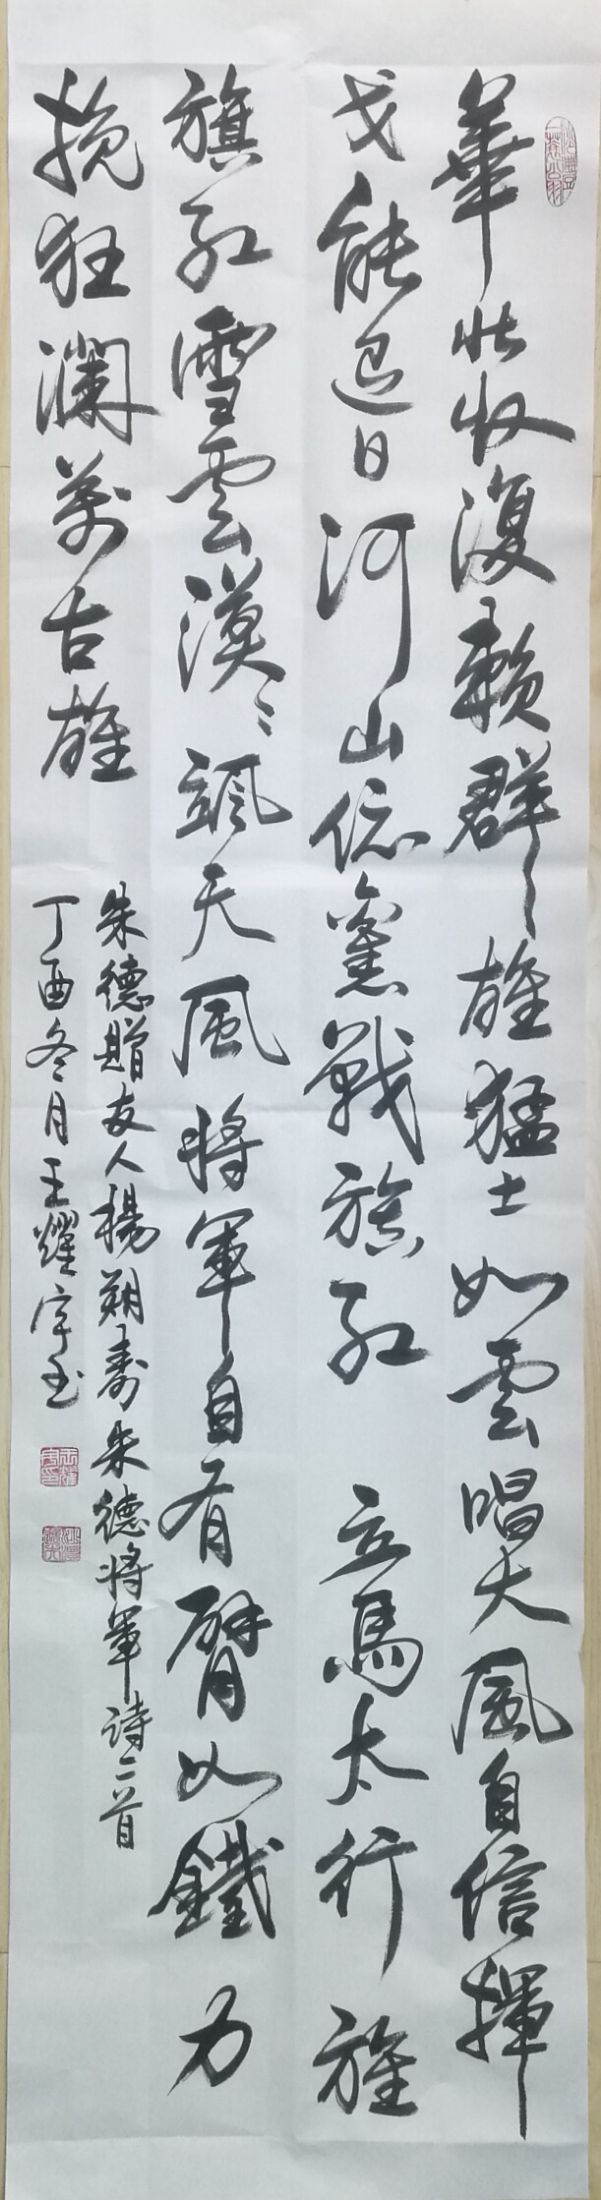 華北收復賴群雄猛士如雲唱大風自信揮
戈能退日河山依舊戰旗紅 立馬太行旌
旗紅雪雲漠〻颯天風將軍自有臂如鐵力
挽狂瀾萬古雄
朱德贈友人楊朔壽朱德將軍詩二首
丁酉冬月王耀宇书